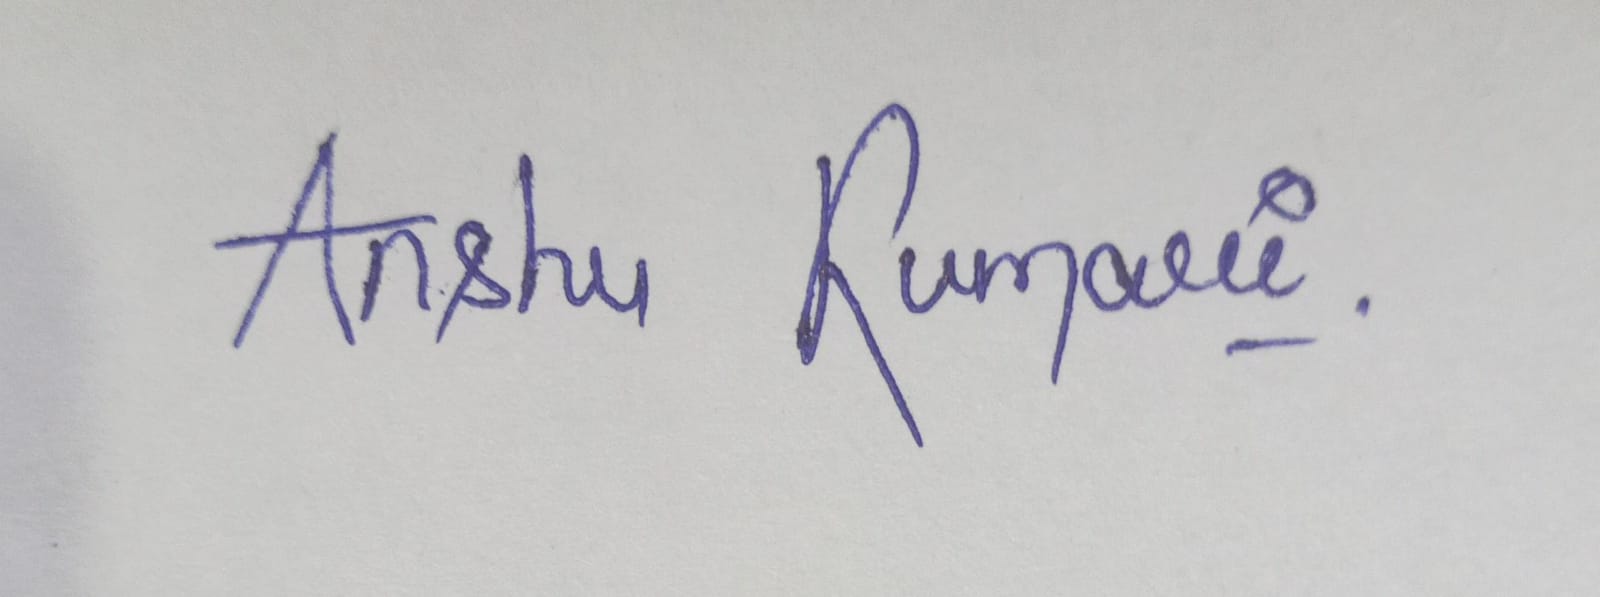 Anshu Kumari.